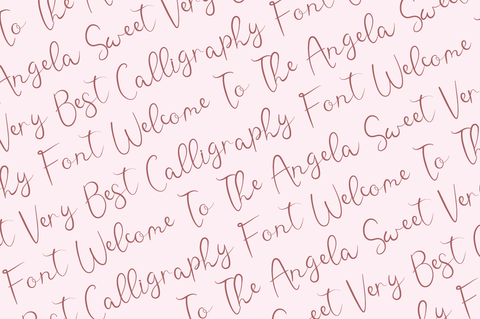 To The
Angela Sweet Very
Very Best Calligraphy Font
hy Font Welcome To The Angela
t Very Best Calligraphy Font Welcome
Font Welcome To The Angela Sweet Ver
Best Calligraphy Font Welcome To Th
To The Angela Sweet Ver
Sweet Very Best C